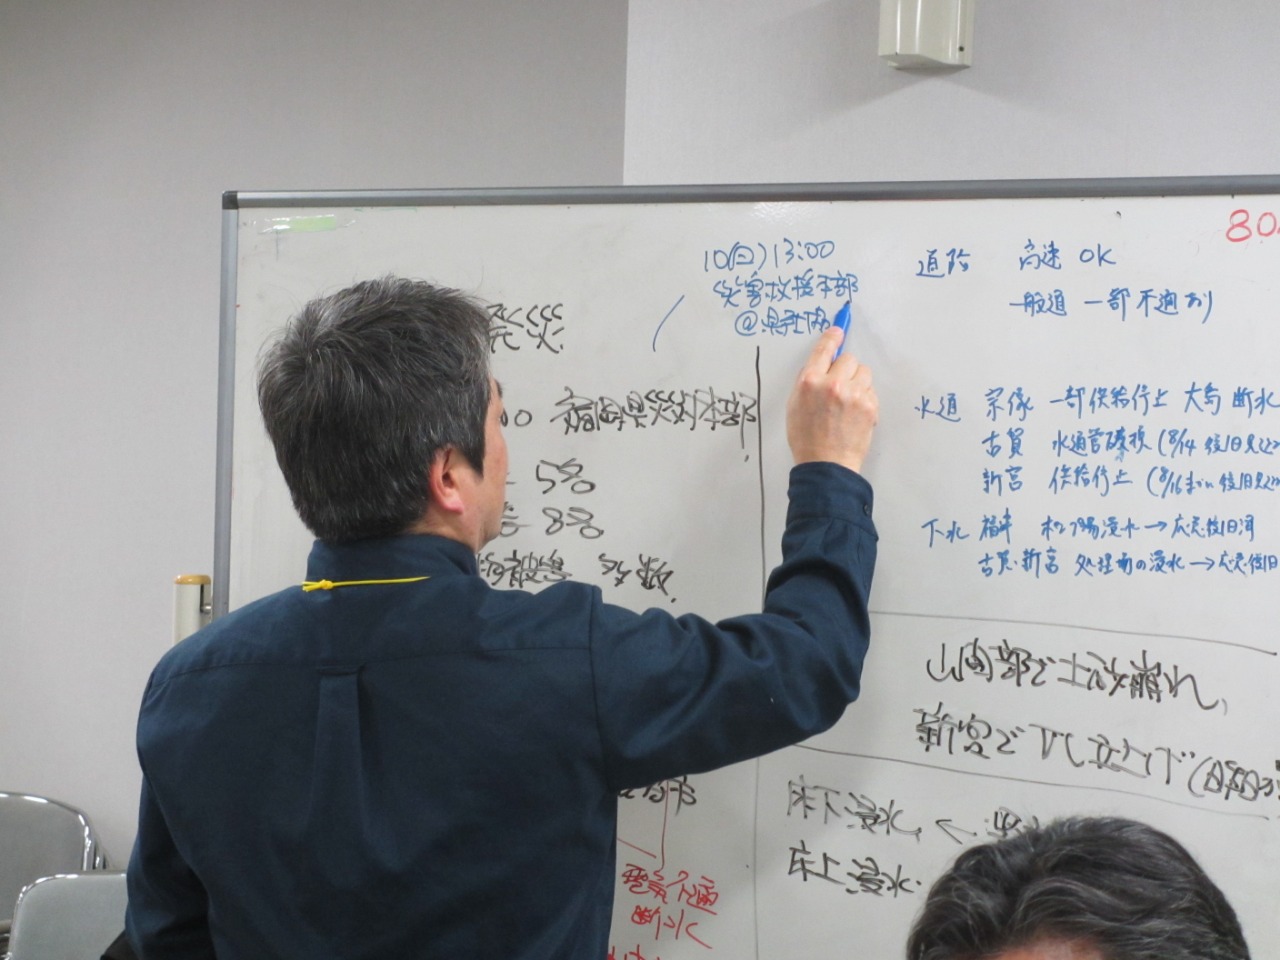 80
10(日)13:00
災害救援本部
@県社協
発災
00 福岡県災対本部
5%
8%
被害 多数
道路 高速 OK
一般道 一部不通あり
水道 宗像 一部供給停止 大島 断水
古賀 水道管破損 (8/14 復旧見込
新宮 供給停止 (8/16までに復旧見込
下水 福津 ポンプ場浸水→応急復旧済
古賀・新宮 処理場の浸水→応急復旧
山間部で土砂崩れ
新宮でVC立上げ(
床下浸水
床上浸水
電気不通
断水